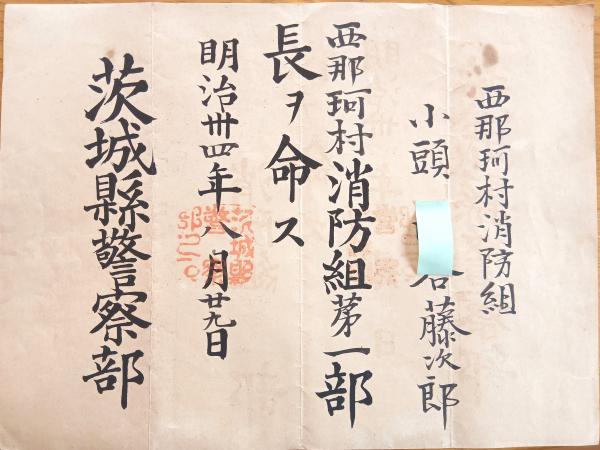 西那珂村消防組
小頭 谷藤次郎
西那珂村消防組第一部
長ヲ命ス
明治卅四年八月廿九日
茨城縣警察部